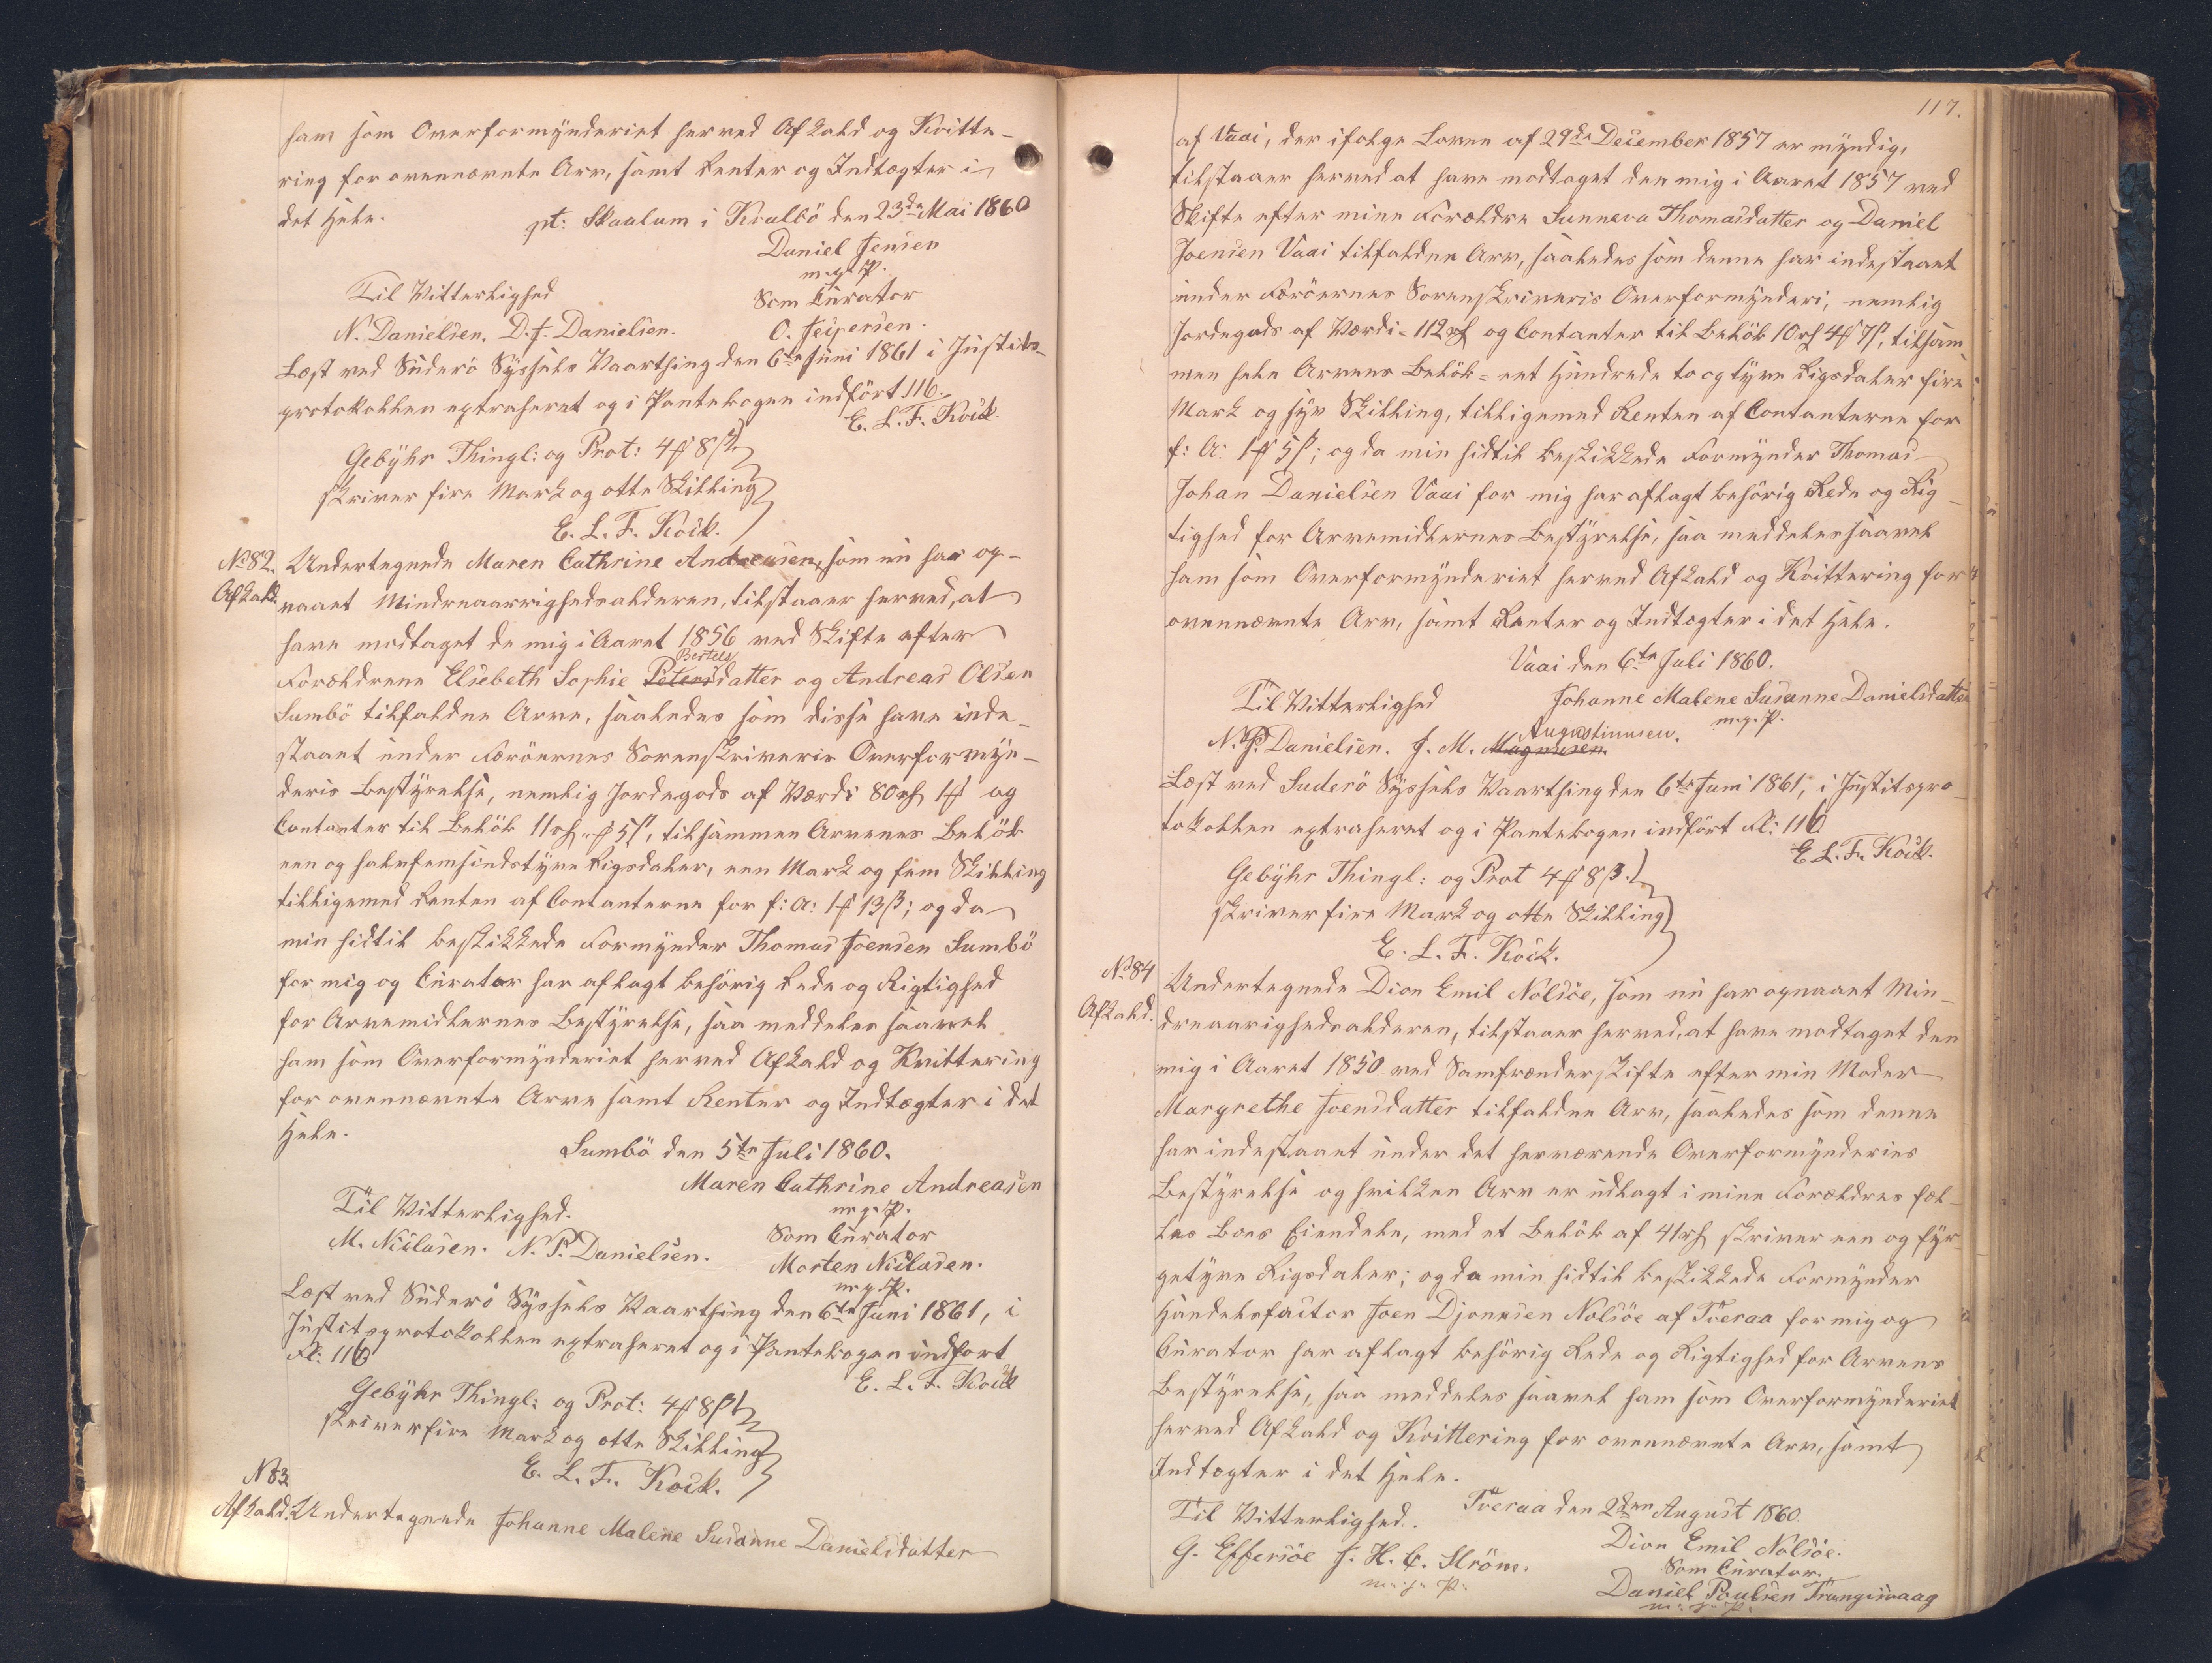 ham som Overformynderiet herved Afkald og Kvitte-
ring for ovennævnte Arv, samt Renter og Indtægter i
det Hele.
pt: Skaalum i Kvalbö den 23de Mai 1860
Daniel Jensen
m. g. P.
Til Vitterlighed
Som Curator
N. Danielsen. D. J. Danielsen.
O. Jespersen.
Læst ved Suderö Sysfels Vaarthing den 6te Juni 1861 i Justits-
protokollen extraheret og i Pantebogen indført 116.
E. L. F. Kock.
Gebyhr Thingl: og Prot: 4 # 8 ß
skriver fire Mark og otte Skilling
E. L. F. Kock.
No 82.
Afkald.
Undertegnede Maren Cathrine Andreasen, som nu har op-
naaet Mindreaarighedsalderen, tilstaaer herved, at
have modtaget de mig i Aaret 1856 ved Skifte efter
Bertels
Forældrene Elsebeth Sophie Petersdatter og Andreas Olsen
Sumbö tilfaldne Arve, saaledes som disse have inde-
staaet under Færöernes Sorenskriveris Overformyn-
deris Bestyrelse, nemlig Jordegods af Værdi 80 rd 1 # og
Contanter til Belöb 11 rd „ # 5 ß, tilsammen Arvenes Belöb
een og halvfemsindstyve Rigsdaler, een Mark og fem Skilling
tilligemed Renten af Contanterne for f: A: 1 # 13 ß; og da
min hidtil beskikkede Formynder Thomas Joensen Sumbö
for mig og Curator har aflagt behörig Rede og Rigtighed
for Arvemidlernes Bestyrelse, saa meddeles saavel
ham som Overformynderiet herved Afkald og Kvittering
for ovennævnte Arve samt Renter og Indtægter i det
Hele.
Sumbö den 5te Juli 1860.
Maren Cathrine Andreasen
m. g. P.
Til Vitterlighed.
Som Curator
M. Niclasen. N. P. Danielsen.
Morten Niclasen.
m. g. P.
Læst ved Suderö Sysfels Vaarthing den 6te Juni 1861, i
Justitsprotokollen extraheret og i Pantebogen indført
Fl: 116
E. L. F. Kock
Gebyhr Thingl: og Prot: 4 # 8 ß
skriver fire Mark og otte Skilling
E. L. F. Kock.
N 83.
Afkald.
Undertegnede Johanne Malene Susanne Danielsdatter
117.
af Vaai, der ifølge Loven af 29de December 1857 er myndig,
tilstaaer herved at have modtaget den mig i Aaret 1857 ved
Skifte efter mine Forældre Sunneva Thomasdatter og Daniel
Joensen Vaai tilfaldne Arv, saaledes som denne har indestaaet
under Færöernes Sorenskriveris Overformynderi, nemlig
Jordegods af Værdi = 112 rd og Contanter til Belöb 10 rd 4 # 7 ß, tilsam-
men hele Arvens Belöb = eet Hundrede to og tyve Rigsdaler fire
Mark og syv Skilling, tilligemed Renten af Contanterne for
f: A: 1 # 5 ß; og da min hidtil beskikkede Formynder Thomas
Johan Danielsen Vaai for mig har aflagt behörig Rede og Rig-
tighed for Arvemidlernes Bestyrelse, saa meddeles saavel
ham som Overformynderiet herved Afkald og Kvittering for
ovennævnte Arv, samt Renter og Indtægter i det Hele.
Vaai den 6te Juli 1860.
Til Vitterlighed
Johanne Malene Susanne Danielsdatter
m. g. P.
Augustinusen.
N. P. Danielsen. J. M. Magnusen
Læst ved Suderö Sysfels Vaarthing den 6te Juni 1861, i Justitspro-
tokollen extraheret og i Pantebogen indført Fl: 116
E. L. F. Kock.
Gebyhr Thingl: og Prot 4 # 8 ß.
skriver fire Mark og otte Skilling
E. L. F. Kock.
No 84
Afkald.
Undertegnede Dion Emil Nolsöe, som nu har opnaaet Min-
dreaarighedsalderen, tilstaaer herved, at have modtaget den
mig i Aaret 1850 ved Samfrænderskifte efter min Moder
Margrethe Joensdatter tilfaldne Arv, saaledes som denne
har indestaaet under det herværende Overformynderies
Bestyrelse og hvilken Arv er udlagt i mine Forældres fæl-
les Boes Eiendele, med et Belöb af 41 rd skriver een og fyr-
getyve Rigsdaler; og da min hidtil beskikkede Formynder
Handelsfactor Joen Djonesen Nolsöe af Tveraa for mig og
Curator har aflagt behörig Rede og Rigtighed for Arvens
Bestyrelse, saa meddeles saavel ham som Overformynderiet
herved Afkald og Kvittering for ovennævnte Arv, samt
Indtægter i det Hele.
Tveraa den 2den August 1860.
Til Vitterlighed.
Dion Emil Nolsöe.
G. Effersöe J. H. C. Ström.
m. g. P.
Som Curator.
Daniel Poulsen Trangisvaag
m. g. P.